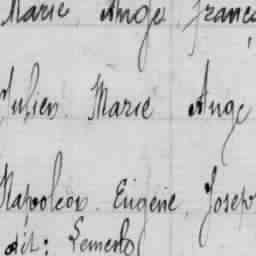 Marie Ange Franç
Julien Marie Ange
Napoléon Eugène Josep
dit: